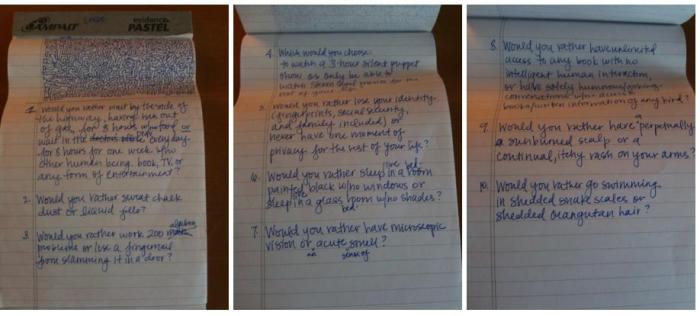 CAMPUT
evidence
PASTEL
1. Would you rather wait by the side of
the highway, having run out
of gas, for 8 hours w/no food or
wait in the doctors office everyday
for 8 hours for one week w/no
other human being, book, TV, or
any form of entertainment?
2. Would you rather sweat chalk
dust or liquid jello?
algebra
3. Would you rather work 200 math
problems or lose a fingernail
from slamming it in a door?
4. What would you choose:
to watch a 3 hour silent puppet
show or only be able to
watch
5. Would you rather lose your identity
(fingerprints, social security,
and family included) or
never have one moment of
privacy for the rest of your life?
6. Would you rather sleep in a room
painted black w/no windows or
sleep in a glass room w/no shades?
7. Would you rather have microscopic
vision or acute smell?
an
sense of
8. Would you rather have unlimited
access to any book with no
intelligent human interaction,
or have solely humorous/joking
conversations w/no access to
books/written information of any kind?
9. Would you rather have perpetually
a sunburned scalp or a
continual, itchy rash on your arms?
10. Would you rather go swimming
in shedded snake scales or
shedded orangutan hair?